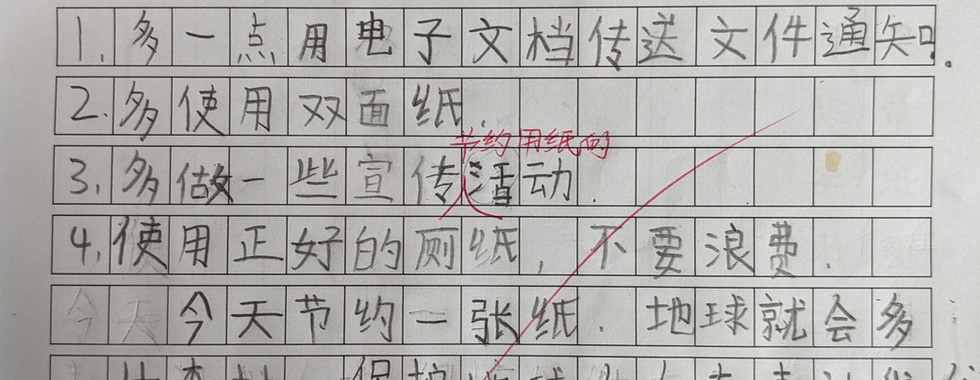 1.多一点用电子文档传送文件通知.
2.多使用双面纸.
节约用纸的
3.多做一些宣传活动.
4.使用正好的厕纸,不要浪费.
今天今天节约一张纸.地球就会多